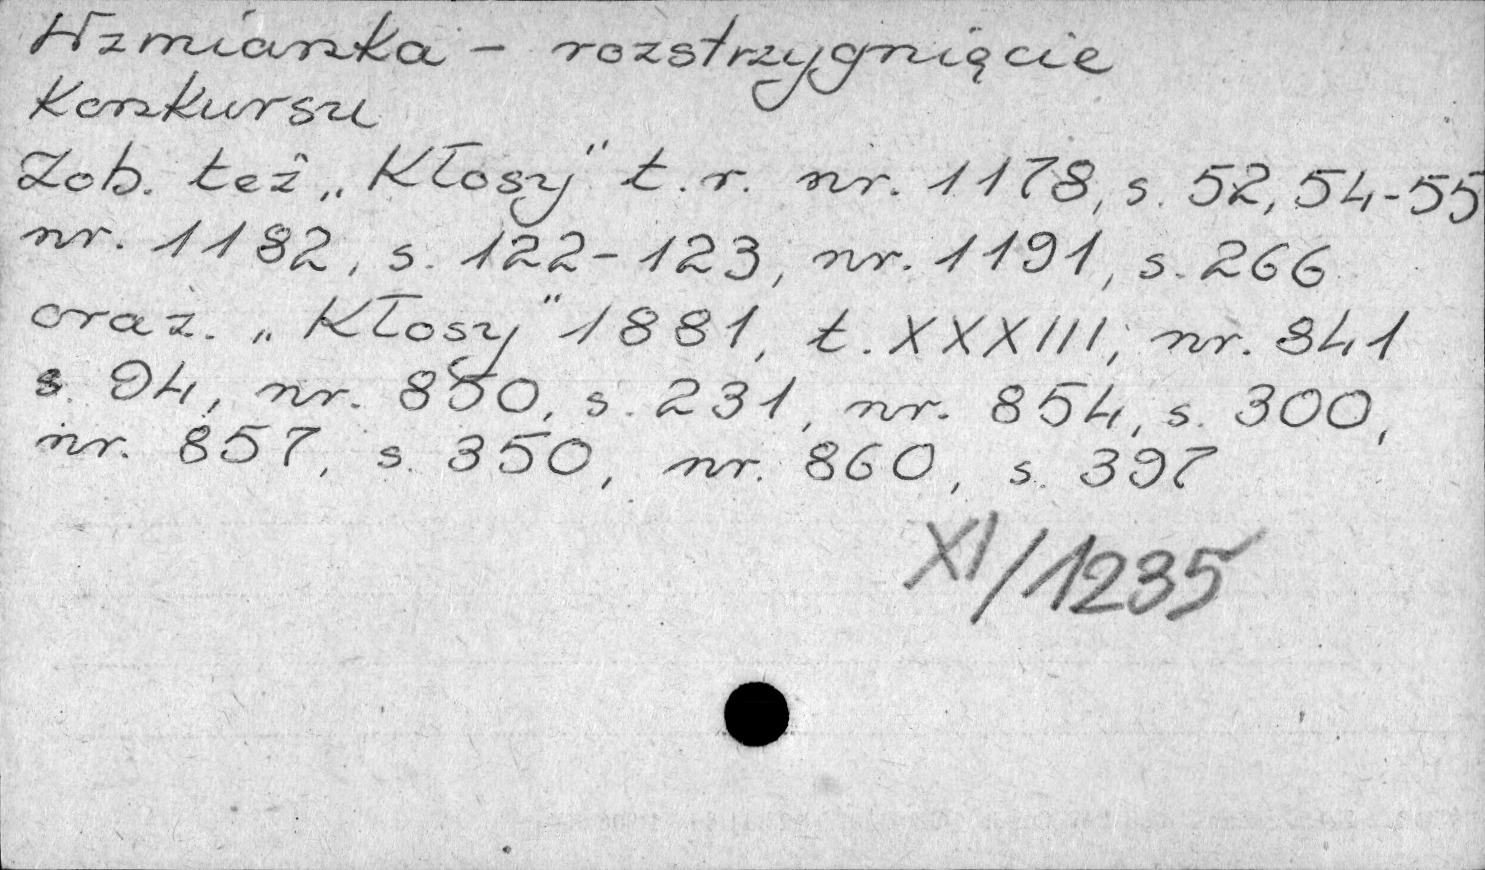 Wzmianka - rozstrzygnięcie
Konkursu
Zob. też „Kłosy" t. r. nr. 1178, s. 52, 54-55
nr. 1182, s. 122-123, nr. 1191, s. 266
oraz. „Kłosy" 1881, t. XXXIII, nr. 841
s. 94, nr. 850, s. 231, nr. 854, s. 300,
nr. 857, s. 350, nr. 860, s. 397
XI/1235